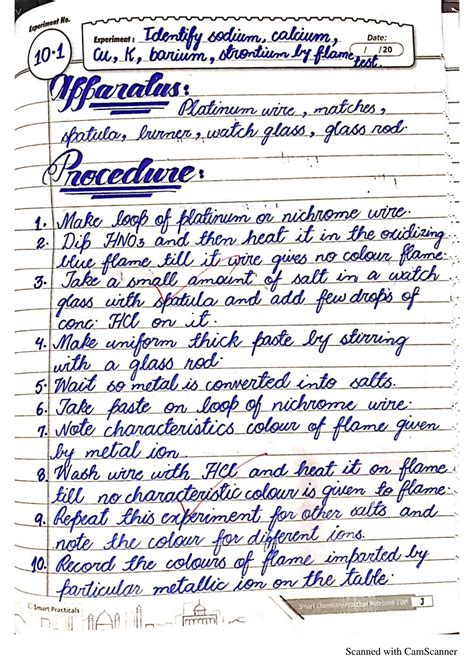 Experiment No.
10.1
Experiment : Identify sodium, calcium,
Date:
/ /20
Cu, K, barium, strontium by flame
test.
Apparatus:
Platinum wire, matches,
spatula, burner, watch glass, glass rod.
Procedure:
1. Make loop of platinum or nichrome wire.
2. Dip HNO3 and then heat it in the oxidizing
blue flame till it wire gives no colour flame.
3. Take a small amount of salt in a watch
glass with spatula and add few drops of
conc. HCl on it.
4. Make uniform thick paste by stirring
with a glass rod.
5. Wait so metal is converted into salts.
6. Take paste on loop of nichrome wire.
7. Note characteristics colour of flame given
by metal ion.
8. Wash wire with HCl and heat it on flame
till no characteristic colour is given to flame.
9. Repeat this experiment for other salts and
note the colour for different ions.
10. Record the colours of flame imparted by
particular metallic ion on the table.
Smart Practicals
Smart Chemistry Practical Notebook 10th
3
Scanned with CamScanner